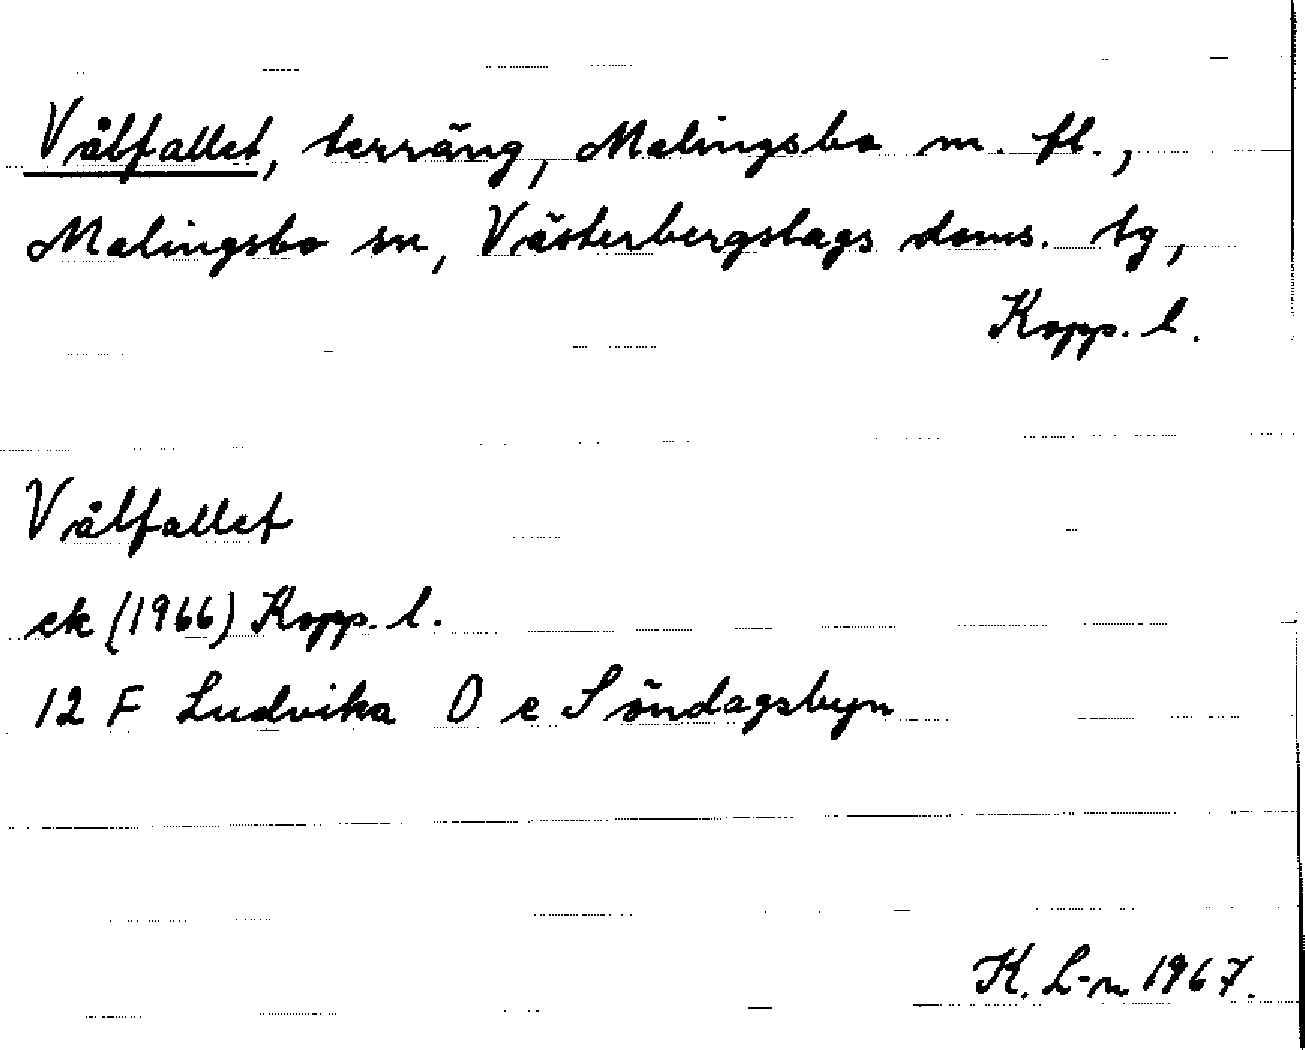 Vålfallet, terräng, Malingsbo m. fl.,
Malingsbo sn, Västerbergslags doms. tg,
Kopp. l.
Vålfallet
ek (1966) Kopp. l.
12 F Ludvika O e Söndagsbyn
K. L-n 1967.